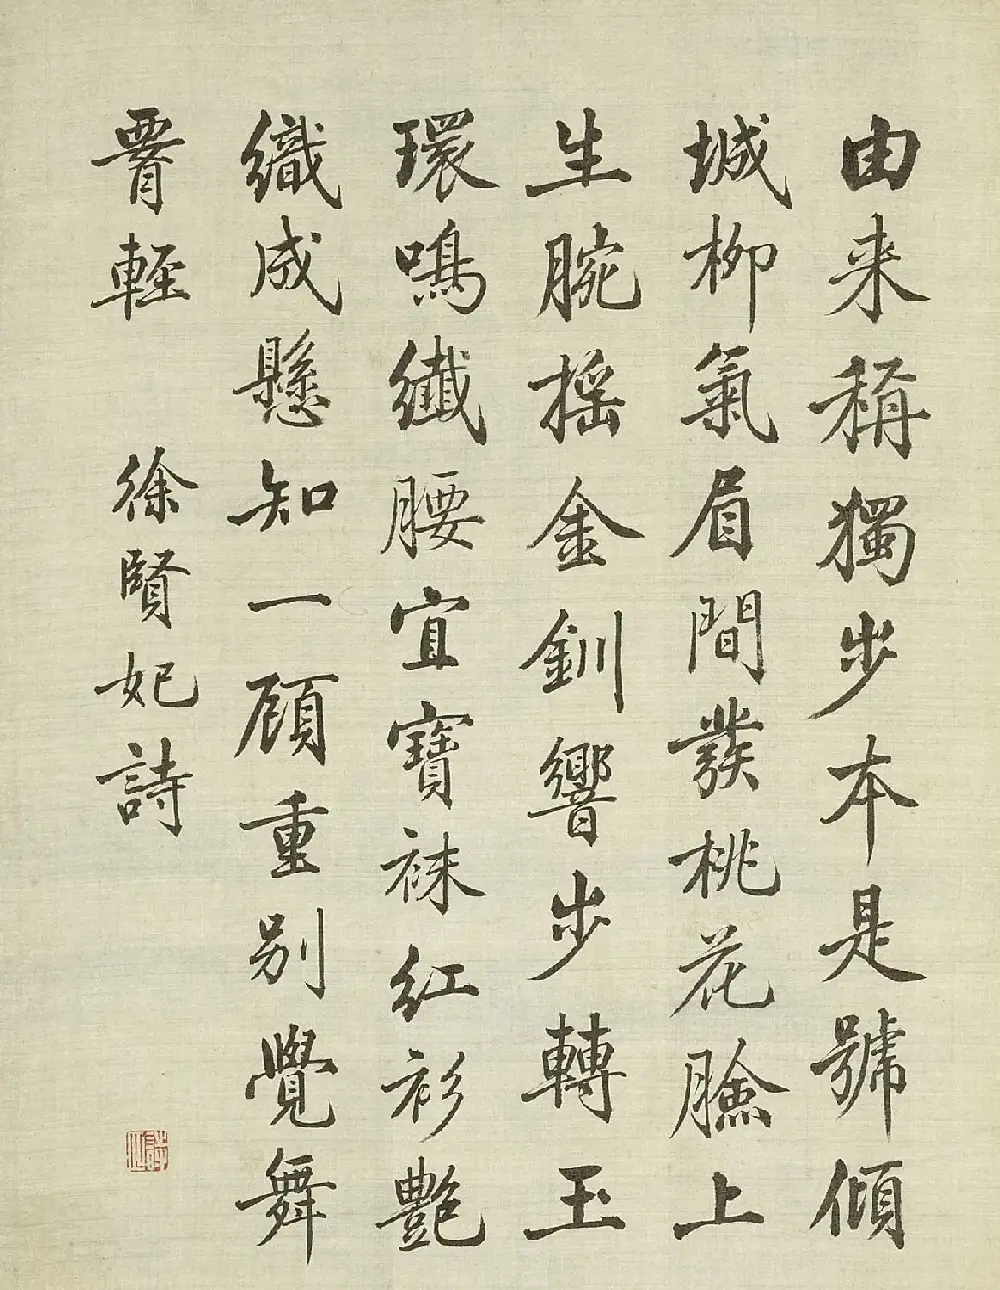 由来稱獨步本是號傾
城柳氣眉間發桃花臉上
生腕摇金釧響步轉玉
環鳴纖腰宜寶袜紅衫艷
織成懸知一顧重別覺舞
腰輕 徐賢妃詩